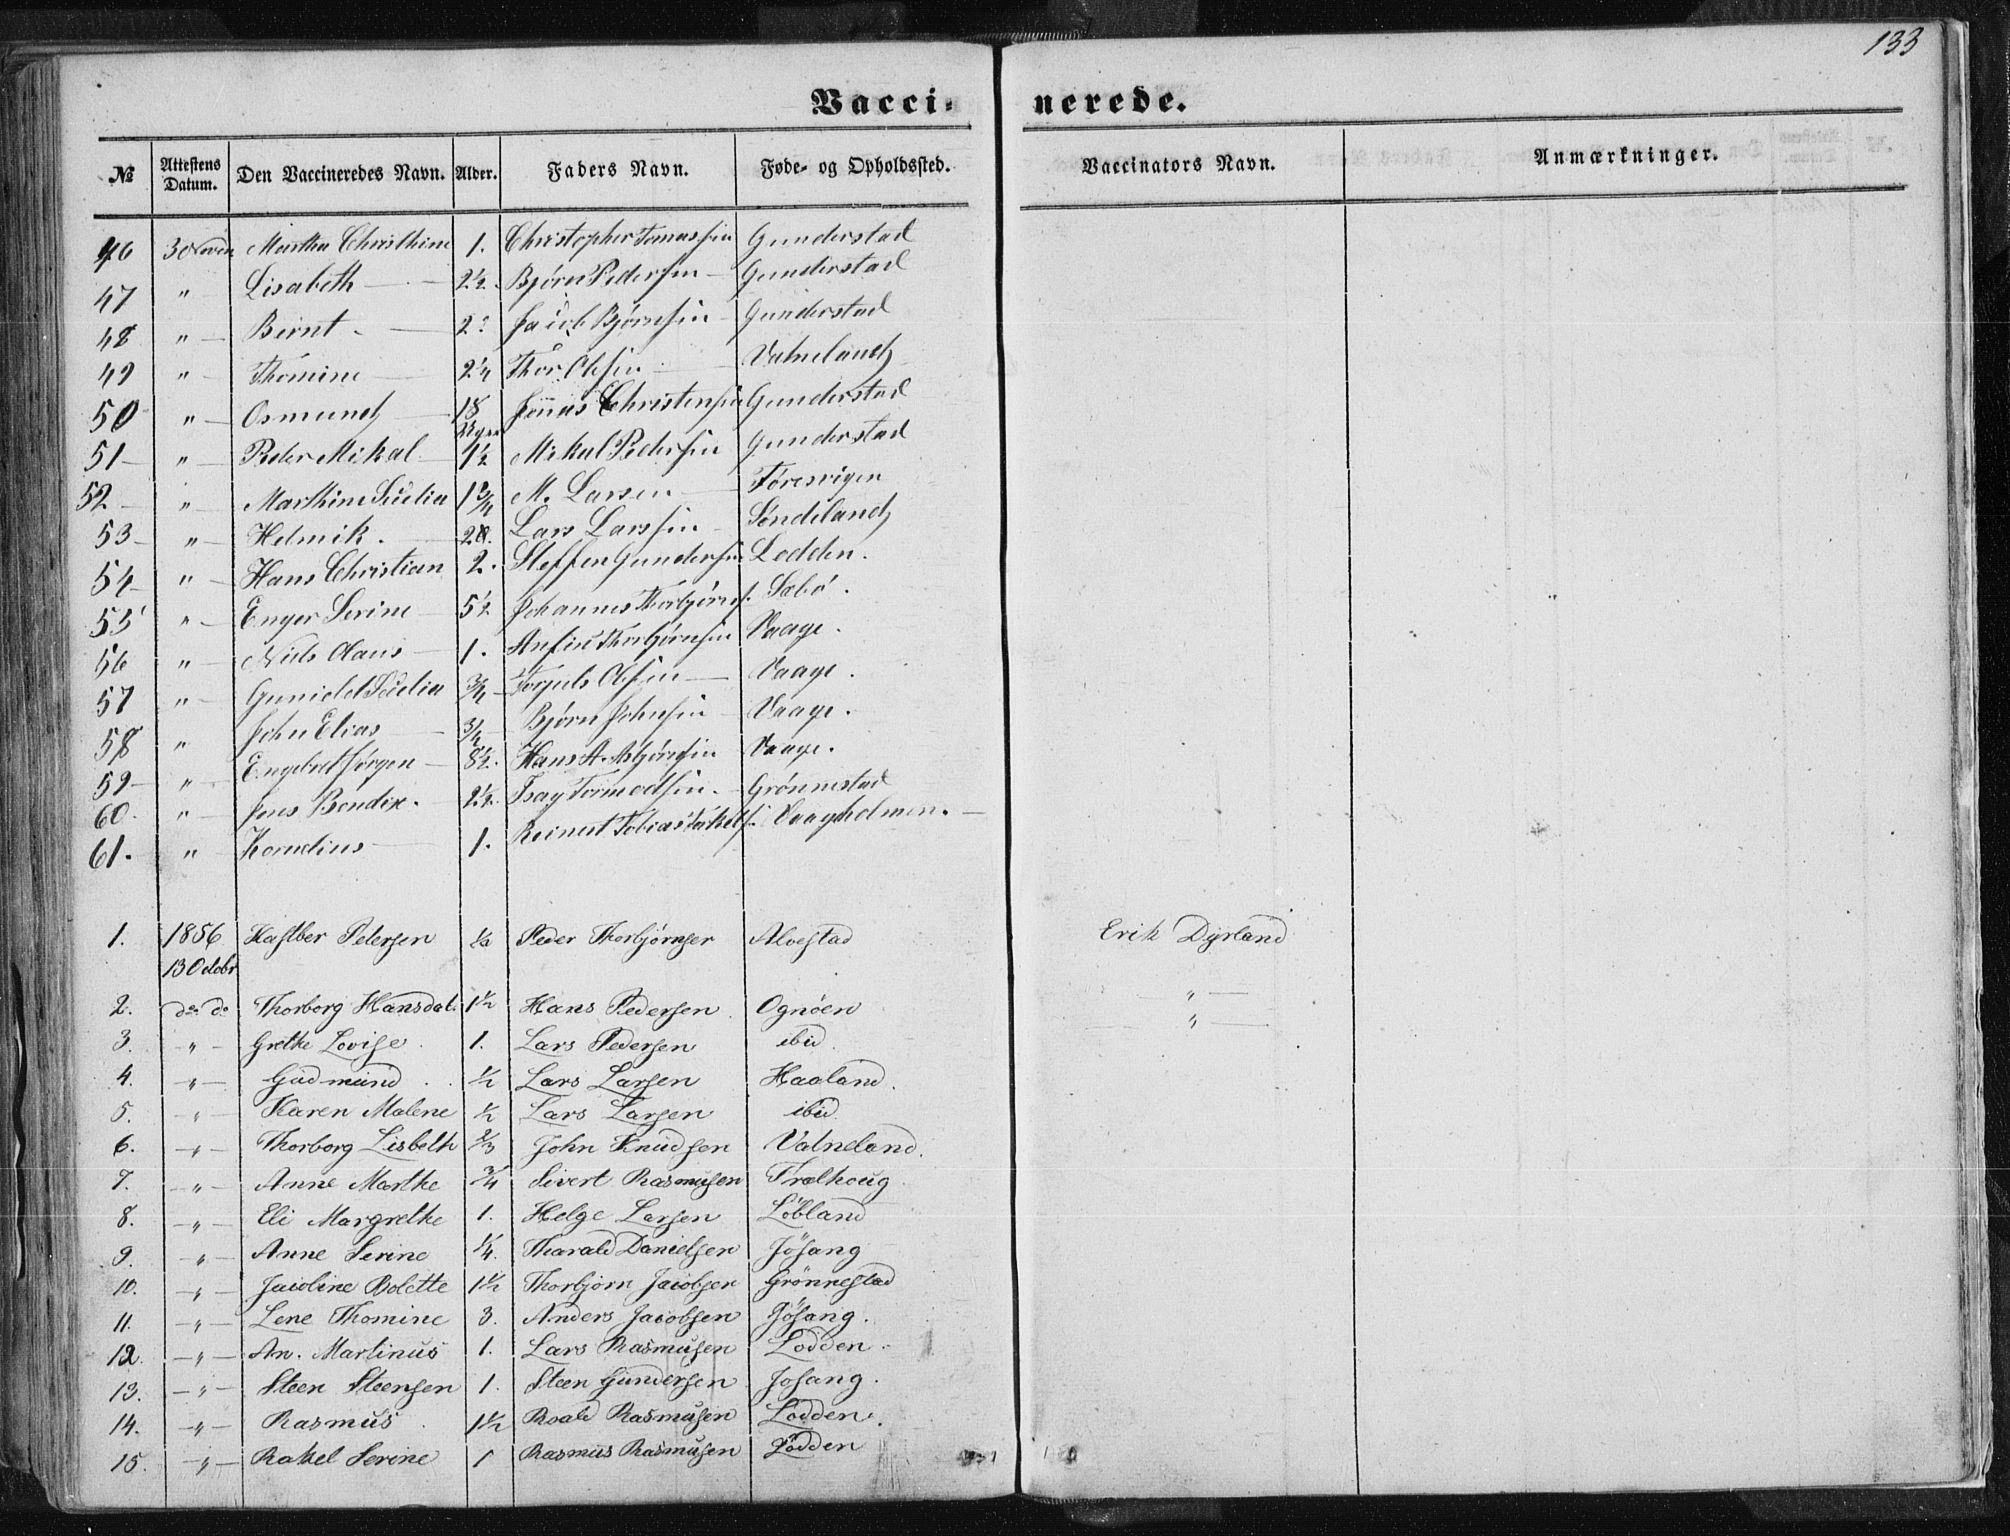 133
Vaccinerede.
№ Attestens Datum. Den Vaccineredes Navn. Alder. Faders Navn. Føde- og Opholdssted. Vaccinators Navn. Anmærkninger.
46 30 Martha Christhine 1. Christopher Gunderstad
47 " Lisabeth 2½. Bjørn Pedersen Gunderstad
48 " Bernt 2 Jacob Bjørnsen Gunderstad
49 " Thomine 2¼ Thor Olsen Vatneland
50 " Osmund 18 Uger Christensen Gunderstad
51 " Peder Mikal 4½ Mikal Pedersen Gunderstad
52 " Marthine 1¾ M. Larsen
53 " Helmik. Lars Larssen
54 " Hans Christian 2. Steffen Gundersen Lodden.
55 " Enger Serine 5½ Johannes Thorbjørns. Sæbø.
56 " Niels Olaus 1. Thorbjørnsen Vaage.
57 " ¾ Olsen Vaage.
58 " John Elias ¾ Bjørn Johnsen Vaage.
59 " Engebret Jørgen 8½. Hans A. Asbjørnsen Vaage.
60. " Jens Bendix. 2½. Isay Tormodsen. Grønnestad
61. " Kornelius 1. Reinert Tobias Vaagholmen.
1. 1856 Petersen ½ Peder Thorbjørnsen Alvestad Erik Dyrland
13 Octobr
2. do do Thorborg Hansdat. 1½ Hans Pedersen Ognøen "
3. " Grethe Lovise. 1. Lars Pedersen ibid. "
4. " Gudmund ½ Lars Larsen Haaland.
5. " Karen Malene ½ Lars Larsen ibid
6. " Thorborg Lisbeth ⅔ John Knudsen Vatneland.
7. " Anne Marthe ¾ Sivert Rasmusen Trælhoug
8. " Eli Margrethe 1. Helge Larsen Løbland
9. " Anne Serine ¼. Tharald Danielsen Jøsang
10. " Jacoline Bolette 1½ Thorbjørn Jacobsen Grønnestad
11. " Lene Thomine 3. Anders Jacobsen Jøsang.
12. " An. Martinus 1. Lars Rasmusen Lodden.
13. " Steen Steensen 1. Steen Gundersen Jøsang.
14. " Rasmus 1½ Roald Rasmusen Lodden.
15. " Rakel Serine 1 Rasmus Rasmusen Lodden